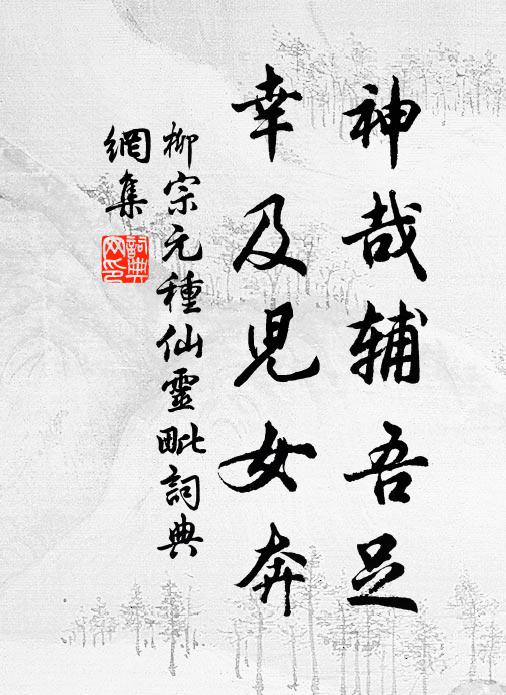 神哉辅吾足
幸及児女奔
柳宗元種仙靈毗詞典
網集
詞典
网印